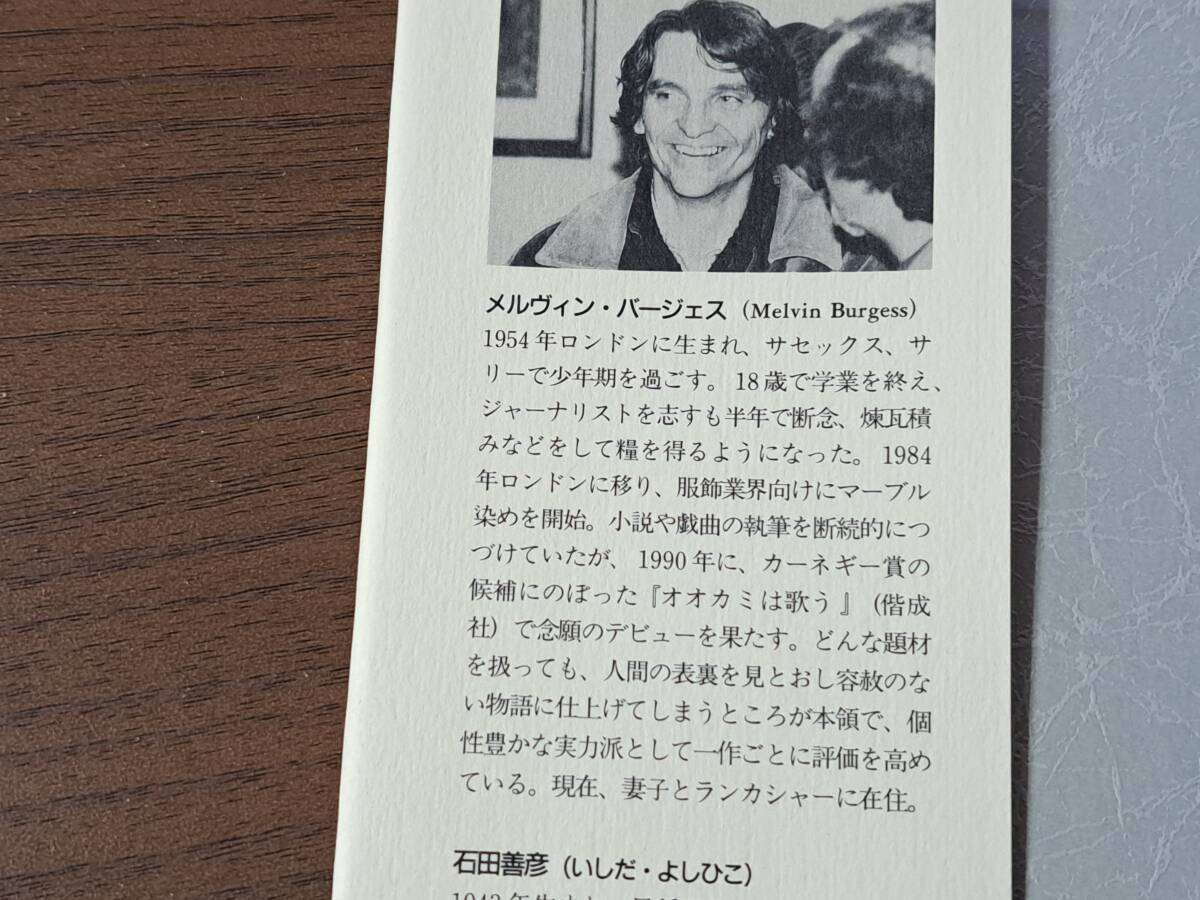 メルヴィン・バージェス（Melvin Burgess）
1954年ロンドンに生まれ、サセックス、サ
リーで少年期を過ごす。18歳で学業を終え、
ジャーナリストを志すも半年で断念、煉瓦積
みなどをして糧を得るようになった。1984
年ロンドンに移り、服飾業界向けにマーブル
染めを開始。小説や戯曲の執筆を断続的につ
づけていたが、1990年に、カーネギー賞の
候補にのぼった『オオカミは歌う』（偕成
社）で念願のデビューを果たす。どんな題材
を扱っても、人間の表裏を見とおし容赦のな
い物語に仕上げてしまうところが本領で、個
性豊かな実力派として一作ごとに評価を高め
ている。現在、妻子とランカシャーに在住。
石田善彦（いしだ・よしひこ）